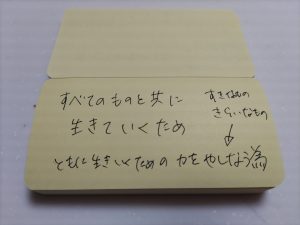 すべてのものと共に
生きていくため
すきなもの
きらいなもの
↓
ともに生きいくための力をやしなう為